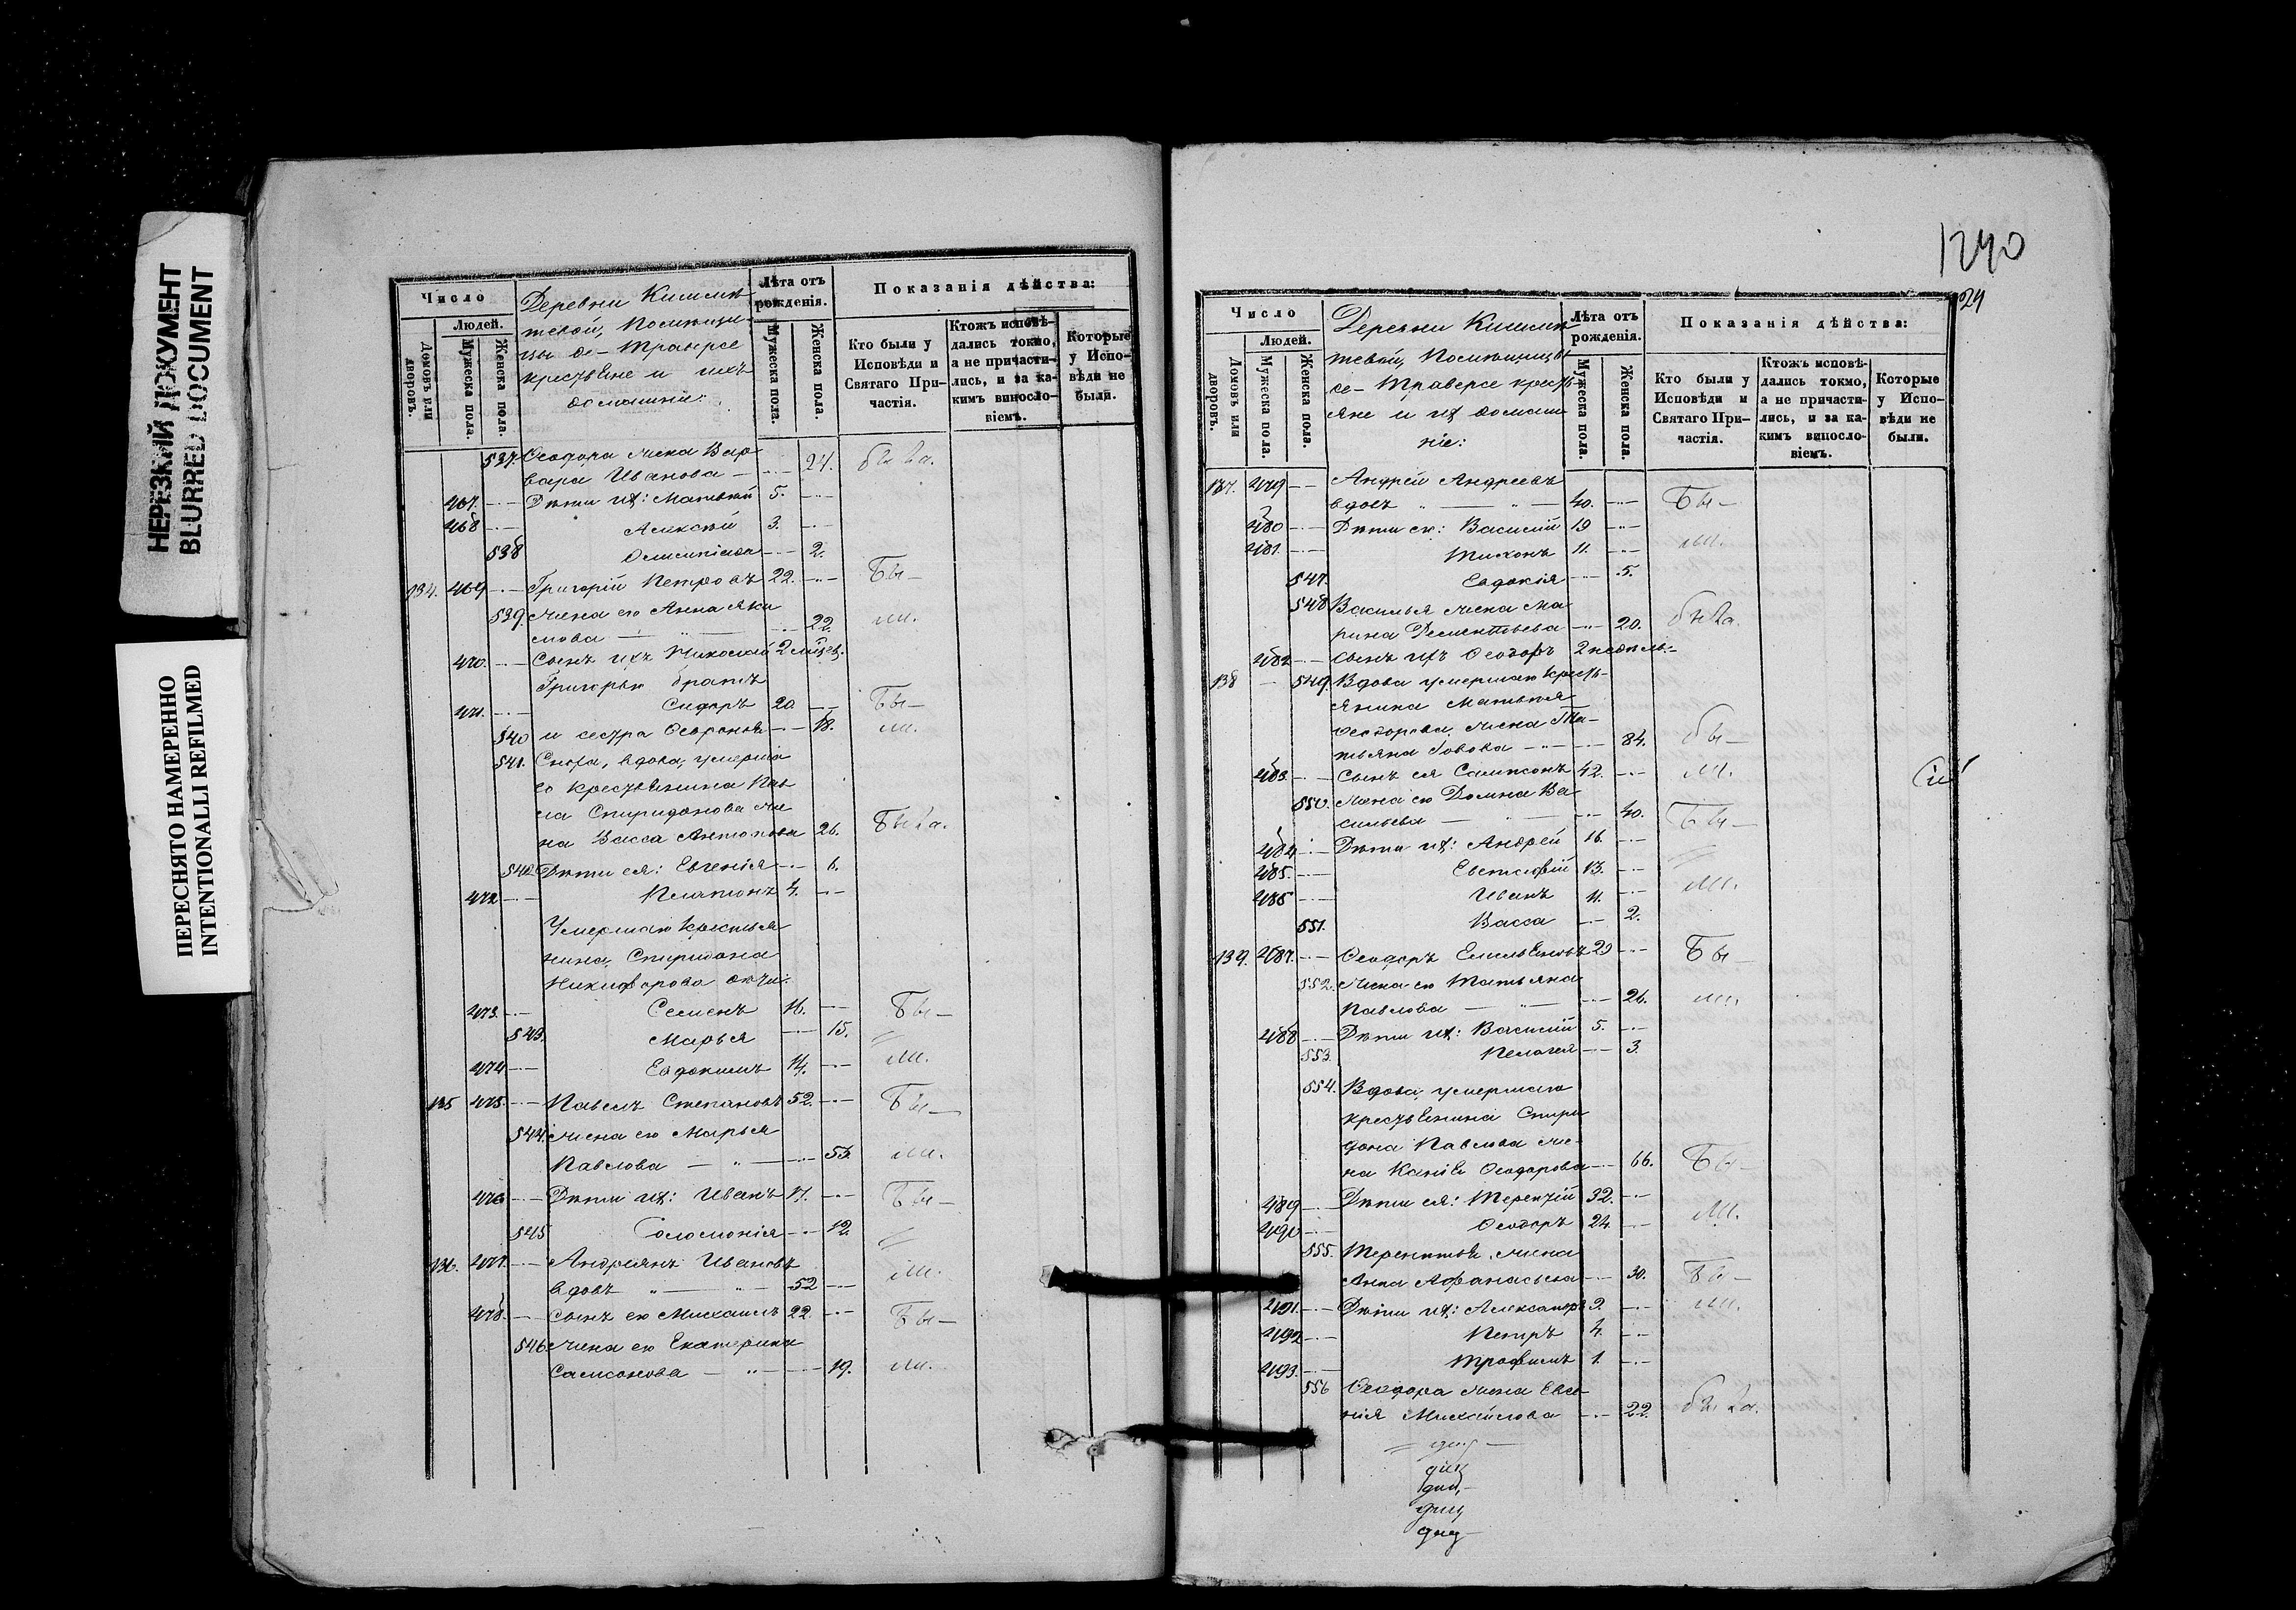 НЕРЕЗКИЙ ДОКУМЕНТ
BLURRED DOCUMENT
ПЕРЕСНЯТО НАМЕРЕННО
INTENTIONALLI REFILMED
Число
Людей.
Домовъ или дворовъ.
Мужеска пола.
Женска пола.
Деревни Кишмя
тевой, Помѣщи-
цы де-Траверсе
крестьяне и ихъ
домашніе:
Лѣта отъ рожденія.
Мужеска пола.
Женска пола.
Показанія дѣйства:
Кто были у Исповѣди и Святаго При-частія.
Ктожъ исповѣ-дались токмо, а не причасти-лись, и за ка-кимъ винословіемъ.
Которые у Испо-вѣди не были.
537. Ѳеодора жена Вар
вара Иванова — 24. была.
467. Дѣти ихъ: Матвѣй 5.
468 Алексѣй 3.
538 2.
134. 469 Григорій Петровъ 22. Бы-
539. жена его Анна Яки
мова — 22. ли.
470. Сынъ ихъ Николай 2 мѣсяц.
Григорья братъ
471. Сидоръ 20. Бы-
540 и сестра 18. ли.
541. Сноха, вдова, умерша
го крестьянина Пав
ла Спиридонова же
на Васса Антонова 26. Была.
542 Дѣти ея: Евгенія 6.
472 Платонъ 4.
Умершаго крестья
нина Спиридона
Никифорова дѣти:
473. Семенъ 16. Бы-
543. Марья 15.
474 Евдокимъ 14. ли.
135 475. Павелъ Степановъ 52. Бы-
544. жена его Марья
Павлова — 53. ли.
476 Дѣти ихъ: Иванъ 17. Бы-
545 Соломонія 12.
136. 477. Андреянъ Ивановъ
вдовъ 52 ли.
478. Сынъ его Михаилъ 22. Бы-
546 жена его Екатерина
Самсонова — 19. ли.
1240
24
Число
Людей.
Домовъ или дворовъ.
Мужеска пола.
Женска пола.
Деревни Кишмя
тевой, Помѣщицы
де-Траверсе кресть
яне и ихъ домаш
ніе:
Лѣта отъ рожденія.
Мужеска пола.
Женска пола.
Показанія дѣйства:
Кто были у Исповѣди и Святаго При-частія.
Ктожъ исповѣ-дались токмо, а не причасти-лись, и за ка-кимъ винословіемъ.
Которые у Испо-вѣди не были.
137. 479 Андрей Андреевъ
вдовъ 40. Бы-
480 Дѣти его: Василій 19
481. Тихонъ 11. ли.
547. Евдокія 5.
548 Василья жена Ма-
рина Дементьева 20. была.
482 Сынъ ихъ Ѳеодоръ 2 недѣль.
138 549. Вдова умершаго кресть-
янина Матвѣя
Ѳеодорова жена Та-
тьяна 84. бы-
483. Сынъ ея Сампсонъ 42. ли.
550. жена его Домна Ва
сильева — 40. Бы-
484 Дѣти ихъ: Андрей 16.
485. Евстафій 13.
486 Иванъ 11. ли.
551. Васса 2.
139. 487. Ѳеодоръ Емельяновъ 29 Бы-
552. жена его Татьяна
Павлова — 26. ли.
488 Дѣти ихъ: Василій 5.
553. Пелагея 3.
554. Вдова умершаго
крестьянина Спири
дона Павлова же-
на Ѳеодорова 66. Бы-
489 Дѣти ея: Терентій 32.
490 Ѳеодоръ 24. ли.
555. Терентья жена
Анна Афанасьева 30. Бы-
491. Дѣти ихъ: Александръ 9. ли.
492 Петръ 4.
493. Трофимъ 1.
556 Ѳеодора жена Евге-
нія Михайлова 22. была.